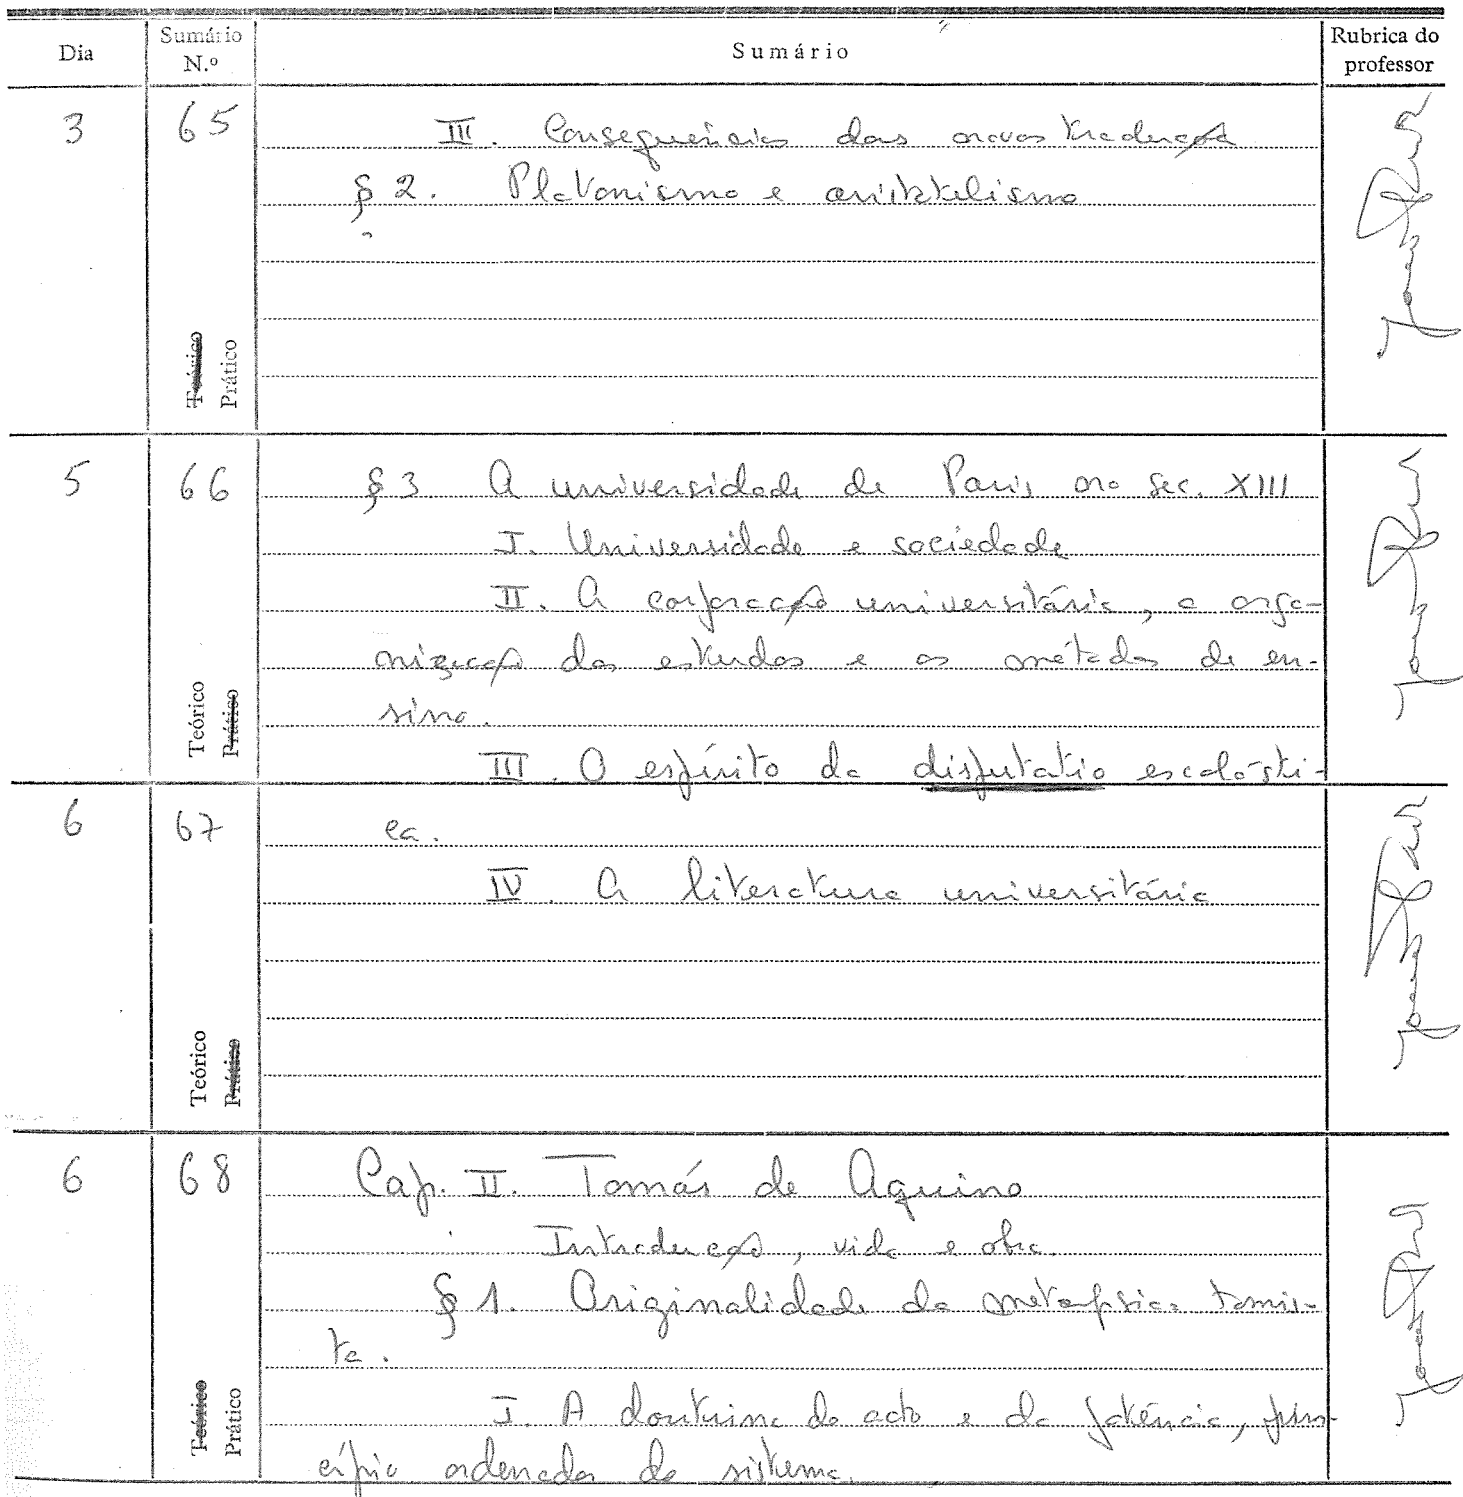 Dia
Sumário
N.º
Sumário
Rubrica do
professor
3
65
III. Consequências das novas traduções
§ 2. Platonismo e aristotelismo
Teórico
Prático
5
66
§ 3 A universidade de Paris no séc. XIII
I. Universidade e sociedade
II. A corporação universitária, a orga-
nização dos estudos e os métodos de en-
sino.
III. O espírito da disputatio escolásti-
Teórico
Prático
6
67
ca.
IV. A literatura universitária
Teórico
Prático
6
68
Cap. II. Tomás de Aquino
Introdução, vida e obra.
§ 1. Originalidade da metafísica tomis-
ta.
I. A doutrina do acto e da potência, prin-
cípio ordenador do sistema.
Teórico
Prático